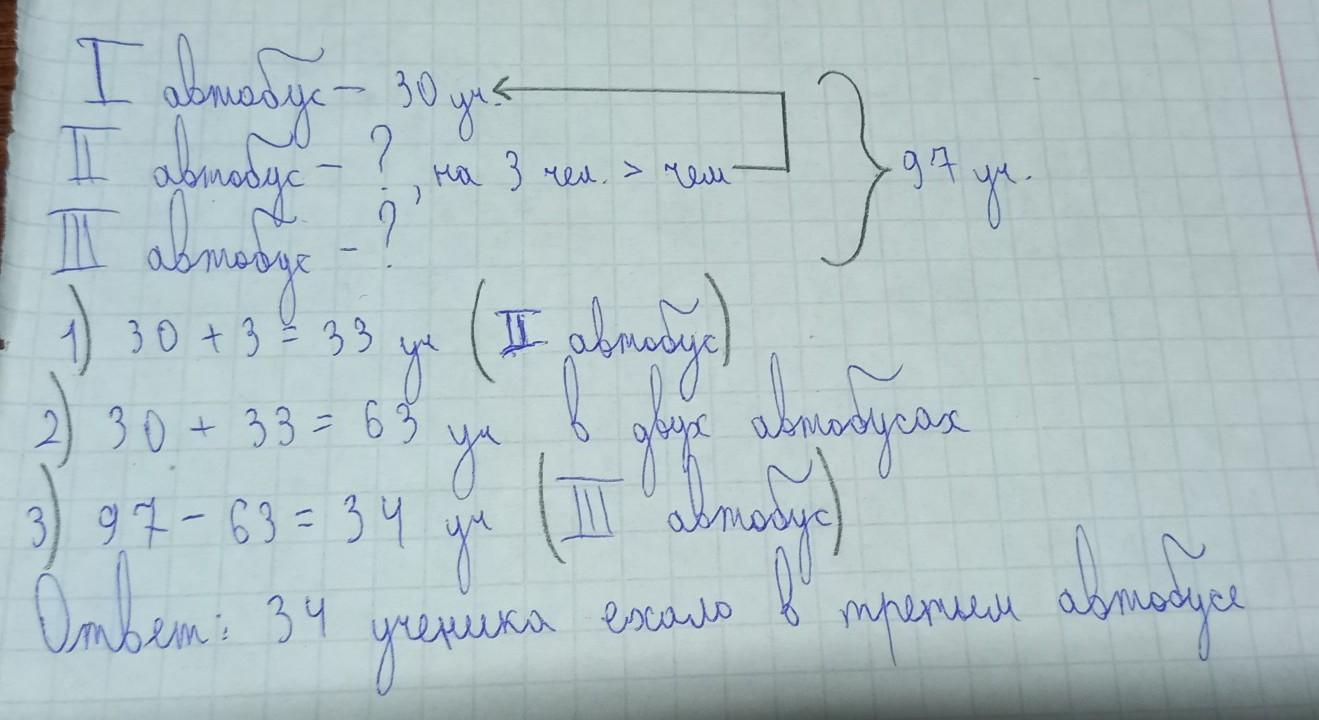 I автобус - 30 уч.
II автобус - ?, на 3 чел. > чем
97 уч.
III автобус - ?
1) 30 + 3 = 33 уч (II автобус)
2) 30 + 33 = 63 уч в двух автобусах
3) 97 - 63 = 34 уч (III автобус)
Ответ: 34 ученика ехало в третьем автобусе